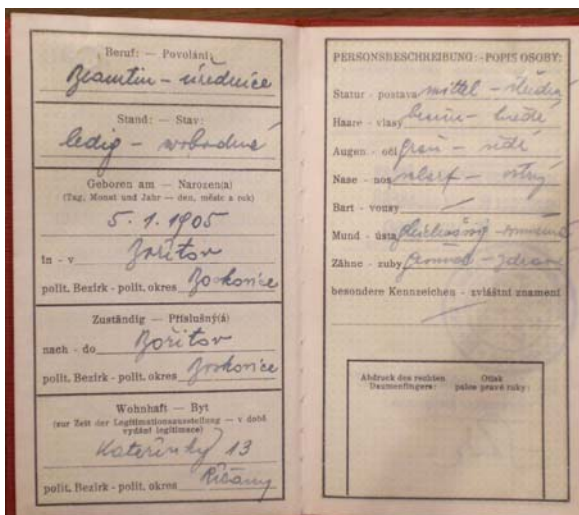 Beruf: — Povolání:
Beamtin - úřednice
Stand: — Stav:
ledig - svobodná
Geboren am — Narozen(a)
(Tag, Monat und Jahr — den, měsíc a rok)
5. 1. 1905
in - v Bořitov
polit. Bezirk - polit. okres Boskovice
Zuständig — Příslušný(á)
nach - do Bořitov
polit. Bezirk - polit. okres Boskovice
Wohnhaft — Byt
(zur Zeit der Legitimationsausstellung — v době
vydání legitimace)
Kateřinky 13
polit. Bezirk - polit. okres Říčany
PERSONSBESCHREIBUNG: - POPIS OSOBY:
Statur - postava mittel - střední
Haare - vlasy braun - hnědé
Augen - oči grau - šedé
Nase - nos scharf - ostrý
Bart - vousy
Mund - ústa
Zähne - zuby gesund - zdravé
besondere Kennzeichen - zvláštní znamení
Abdruck des rechten Daumenfingers:
Otisk palce pravé ruky: